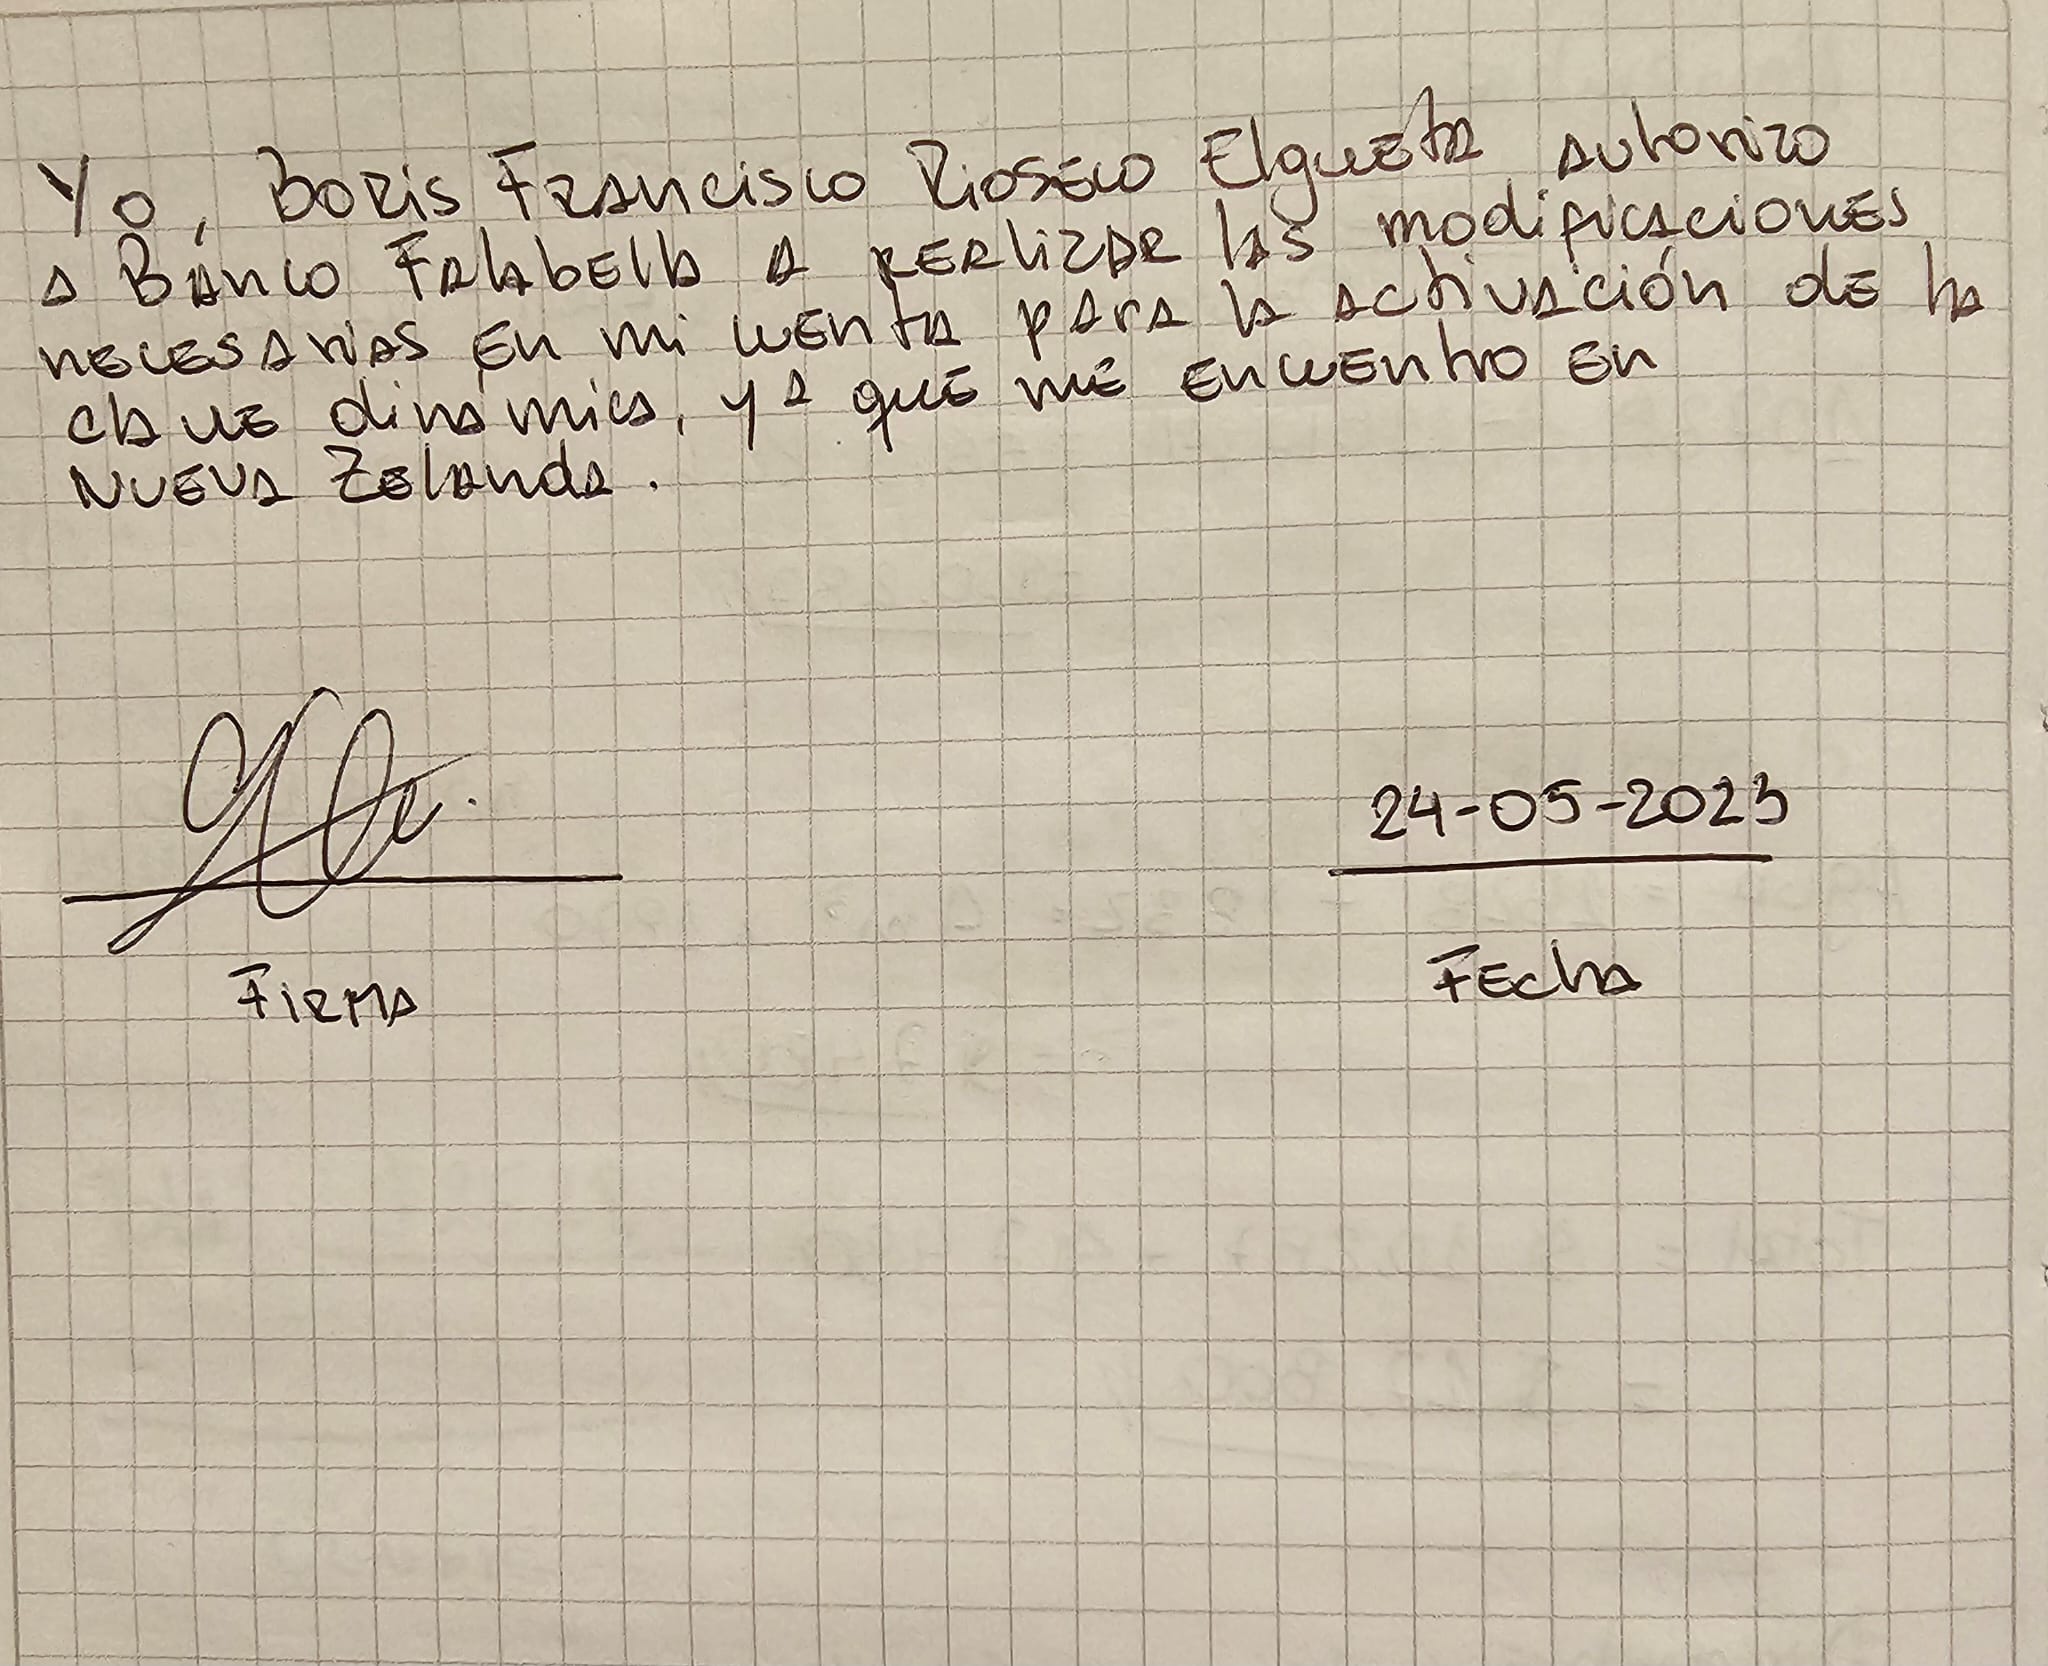 Yo, Boris Francisco Rioseco Elgueta autorizo
a Banco Falabella a realizar las modificaciones
necesarias en mi cuenta para la activación de la
clave dinámica, ya que me encuentro en
Nueva Zelanda.
24-05-2023
Firma
Fecha